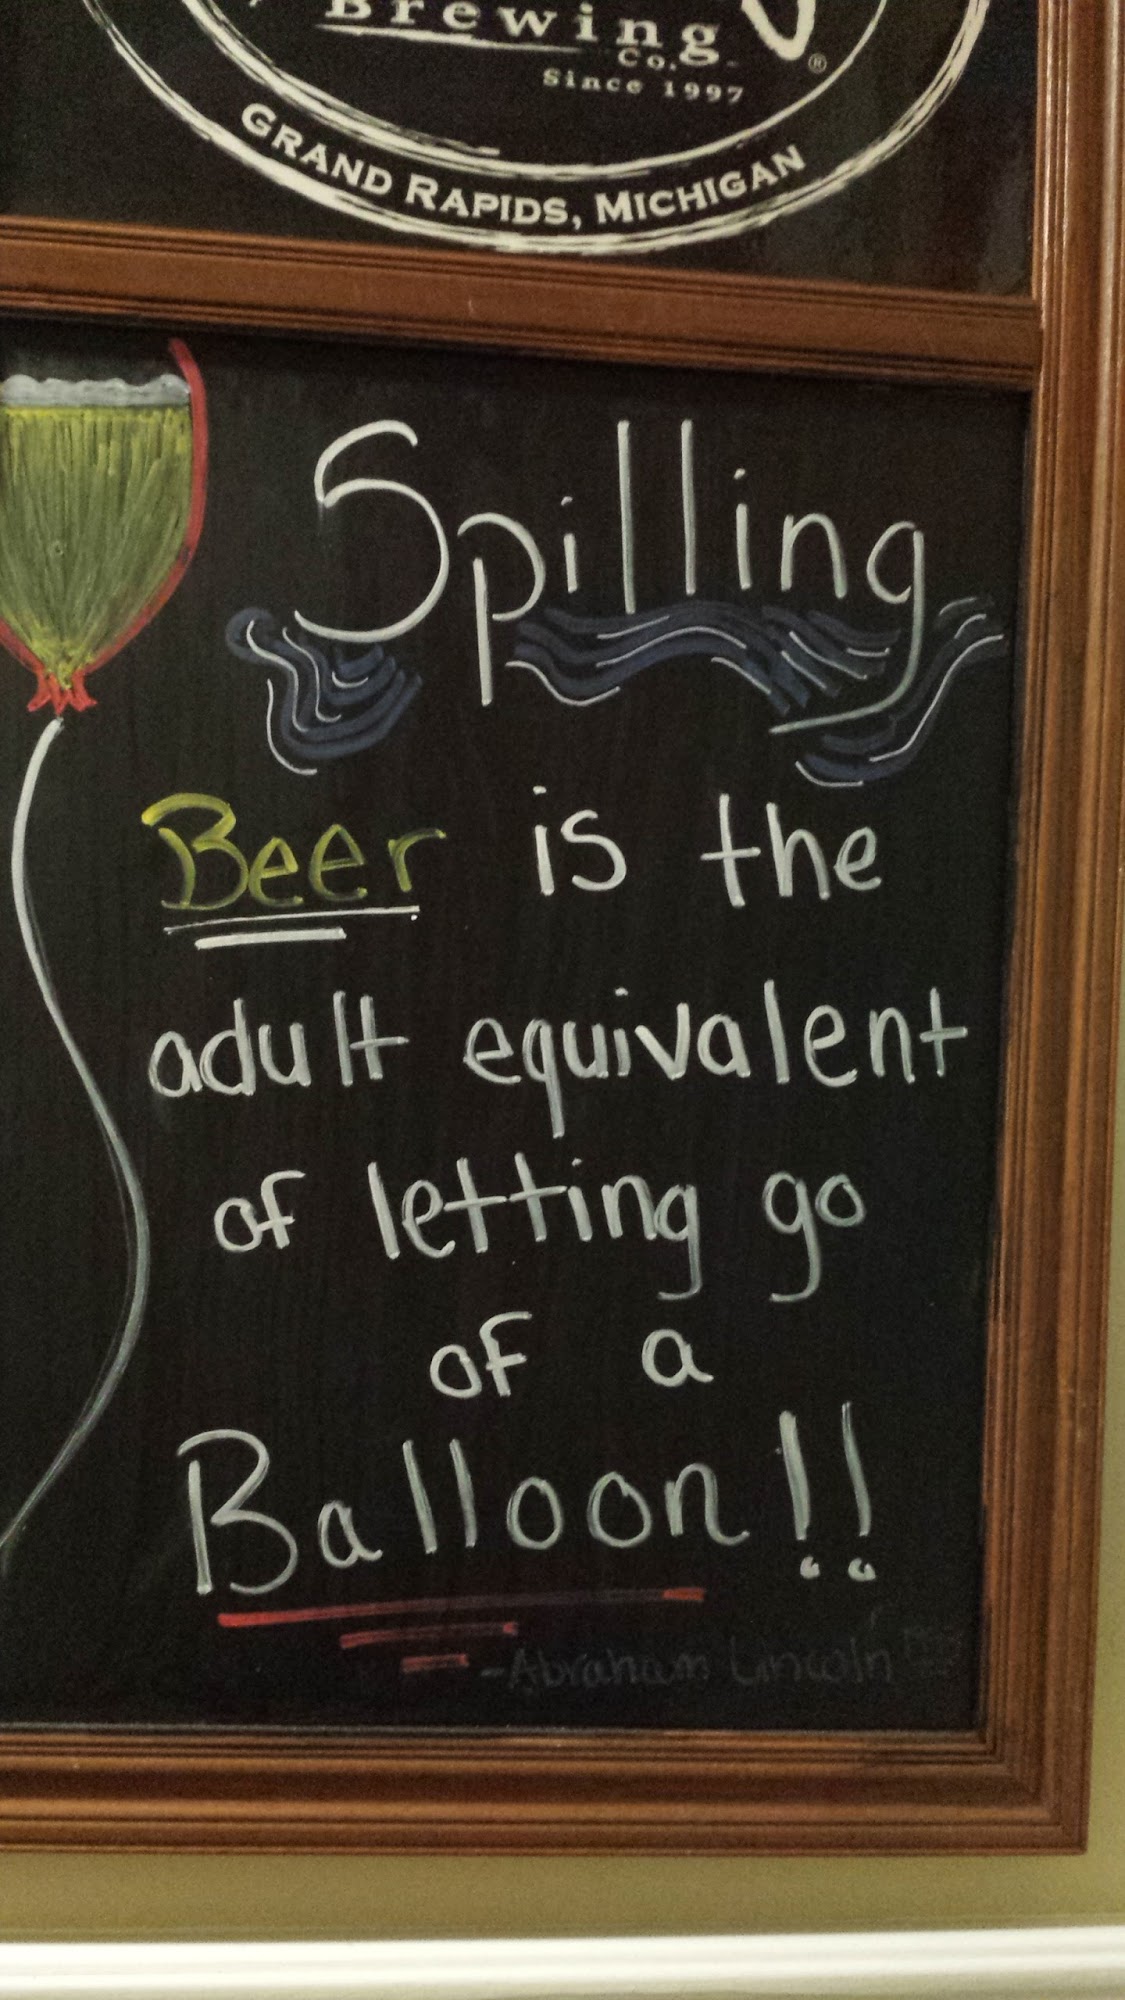 Brewing
Co.
®
Since 1997
GRAND RAPIDS, MICHIGAN
Spilling
Beer is the
adult equivalent
of letting go
of a
Balloon!!
-Abraham Lincoln